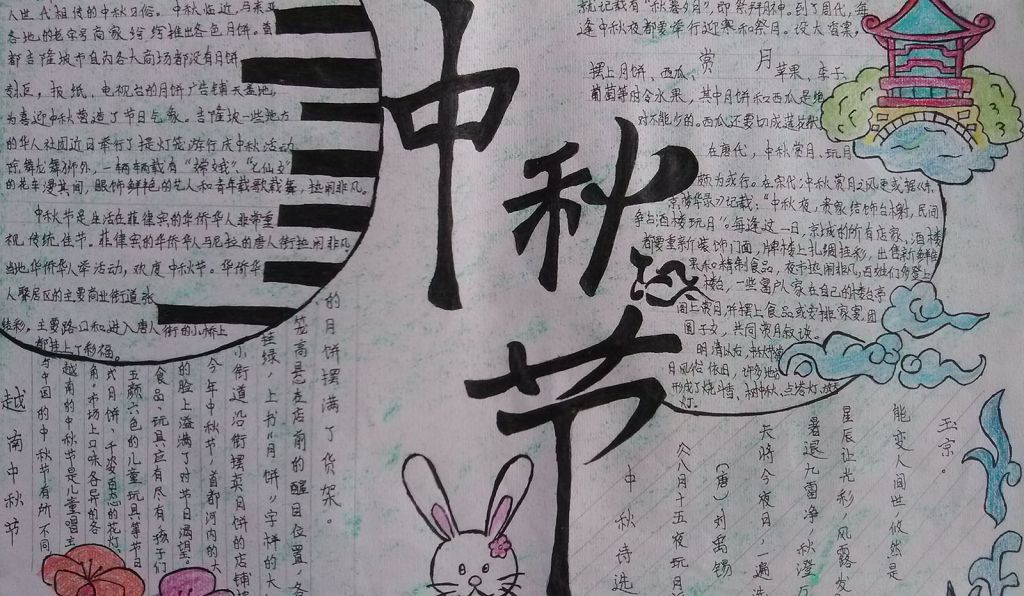 中秋节
人世代相传的中秋习俗。中秋临近,马来亚
各地的老字号商家纷纷推出各色月饼。首
都吉隆坡市区内各大商场都设有月饼
专柜,报纸、电视台的月饼广告铺天盖地,
为喜迎中秋营造了节日气氛。吉隆坡一些地方
的华人社团近日举行了提灯笼游行庆中秋活动
除舞龙舞狮外,一辆辆载有“嫦娥”、“七仙女”
的花车漫其间,眼饰鲜艳的艺人和青年载歌载舞,热闹非凡。
中秋节是生活在菲律宾的华侨华人非常重
视传统佳节。菲律宾的华侨华人马尼拉的唐人街热闹非凡
当地华侨华人举活动,欢度中秋节。华侨华
人聚居区的主要商业街道张
结彩,主要路口和进入唐人街的小桥上
都挂上了彩福。
越南中秋节
与中国的中秋节有所不同
越南的中秋节是儿童唱主
角,市场上口味各异的各
式月饼、千姿百态的花灯、
五颜六色的儿童玩具等节日
食品、玩具应有尽有孩子们
的脸上溢满了对节日渴望。
今年中秋节,首都河内的大
小街道沿街摆卖月饼的店铺
挂绿,上书“月饼”字样的大
签高悬在店前的醒目位置,各
的月饼摆满了货架。
赏月
就记载有“秋暮夕月”,即祭拜月神。到了周代,每
逢中秋夜都要举行迎寒和祭月。设大香案,
摆上月饼、西瓜、苹果、车子、
葡萄等时令水果,其中月饼和西瓜是绝
对不能少的。西瓜还要切成莲花状
在唐代,中秋赏月、玩月
颇为盛行。在宋代,中秋赏月之风更盛,据《东
京梦华录》记载:“中秋夜,贵家结饰台榭,民间
争占酒楼玩月”。每逢这一日,京城的所有店家、酒楼
都要重新装饰门面,牌楼上扎绸挂彩,出售新鲜佳
果和精制食品,夜市热闹非凡,百姓们多登上
楼台,一些富户人家在自己的楼台亭
阁上赏月,并摆上食品或安排家宴,团
圆子女,共同赏月叙谈。
明清以后,中秋节赏
月风俗依旧,许多地方
形成了烧斗香、树中秋、点塔灯、放天
灯。
中秋诗选
《八月十五夜玩月
(唐)刘禹锡
天将今夜月,一遍洗
暑退九霄净,秋澄万
星辰让光彩,风露发
能变人间世,攸然是
玉京。